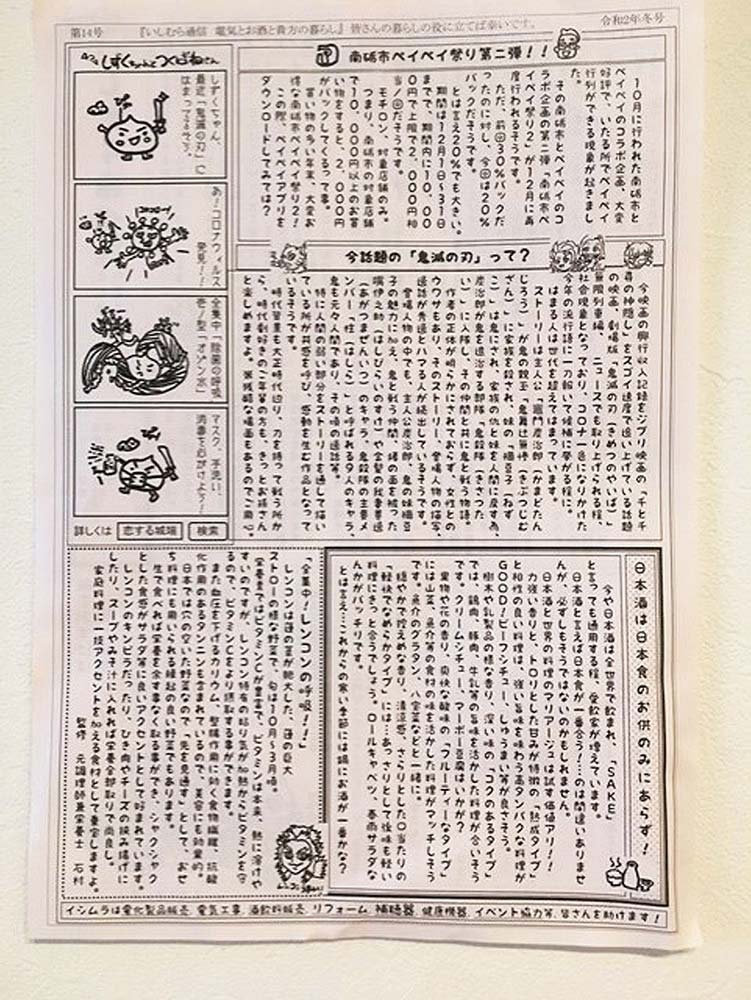 第14号
『いしむら通信 電気とお酒と貴方の暮らし』 皆さんの暮らしの役に立てば幸いです。
令和2年冬号
南砺市ペイペイ祭り第二弾!!
10月に行われた南砺市と
ペイペイのコラボ企画、大変
好評で、いたる所でペイペイ
行列ができる現象が起きまし
た。
その南砺市とペイペイのコ
ラボ企画の第二弾「南砺市ペ
イペイ祭り2」が12月に再
度行われるそうです。
ただ、前回30%バックだ
ったのに対し、今回は20%
とは言え20%でも大きい。
期間は12月1日〜31日
まで、期間内に10,00
0円で上限で2,000円相
当/回だそうです。
モチロン、対象店舗のみ。
つまり、南砺市の対象店舗
で10,000円以上のお買
い物をすると、2,000円
がバックしてくるって事。
買い物の多い年末、大変お
得な南砺市ペイペイ祭り2!
この際、ペイペイアプリを
ダウンロードしてみては?
4コマ しずくちゃんとつくばねさん
しずくちゃん、
最近「鬼滅の刃」に
はまってるそう。
あ!コロナウィルス
発見!!
全集中「除菌の呼吸
壱ノ型「オゾン水」
マスク、手洗い、
消毒を心がけよう!
詳しくは 恋する城端 検索
今話題の「鬼滅の刃」って?
今映画の興行収入記録をジブリ映画の「千と千
尋の神隠し」をスゴイ速度で追い上げている話題
の映画、劇場版「鬼滅の刃(きめつのやいば)」
無限列車編、ニュースでも取り上げられる程、
社会現象となっており、コロナ一色になりかけた
今年の流行語に一刀報いて候補に挙がる程に。
はまる人は世代を超えてはまっています。
ストーリーは主人公「竈門炭治郎(かまどたん
じろう)」が鬼の親玉「鬼舞辻無惨(きぶつじむ
ざん)」に家族を殺され、妹の「禰豆子(ねず
こ)」は鬼にされ、家族の仇と妹を人間に戻す為、
炭治郎が鬼を退治する部隊「鬼殺隊(きさつた
い)」に入隊し、その仲間と共に鬼と戦う物語。
作者の正体が明らかにされておらず、女性との
ウワサもあり、そのストーリー、登場人物の描写、
逸話が秀逸とハマる人が続出しているそうです。
登場人物の中でも、主人公炭治郎、鬼の妹禰豆
子の魅力に加え、鬼と戦う仲間、猪の面を被った
嘴伊之助(はしびらいのすけ)や金髪の我妻善逸
(あがつまぜんいつ)のキャラ、鬼殺隊の主要メ
ンバー「柱(はしら)」と呼ばれる9人のキャラ、
鬼も元々人間であり、その頃の逸話等。
特に人間の弱い部分をストーリーを通して描い
ている所が共感を呼び、感動を生む作品となって
いるそうです。
時代背景も大正時代辺り、刀を持って戦う所か
ら、時代劇好きのご年輩の方も、きっとお孫さん
と楽しめますよ。※残酷な場面もあるのでご用心。
日本酒は日本食のお供のみにあらず!
今や日本酒は全世界で飲まれ、「SAKE」
と言っても通用する程、愛飲家が増えています。
日本酒と言えば日本食が一番合う!…のは間違いありませ
んが、必ずしもそうではないのかもしれません。
日本酒と世界の料理のマリアージュは試す価値アリ!!
力強い香りと、トロリとした甘みが特徴の「熟成タイプ」
と相性の良い料理は、強い旨味を味わう高タンパクな料理が
GOOD!ビーフシチュー、しゅうまい等が良さそう。
樹木や乳製品の様な香り、深い味の「コクのあるタイプ」
では、鶏肉、豚肉、牛乳等の旨味を活かした料理が合いそう
です。クリームシチュー、マーボー豆腐はいかが?
果物や花の香り、爽快な酸味の「フルーティーなタイプ」
には山菜、魚介等の食材の味を活かした料理がマッチしそう
です。魚介のグラタン、八宝菜などと一緒に。
穏やかで控えめな香り、清涼感、さらりとした口当たりの
「軽快でなめらかタイプ」には…あっさりとして後味も軽い
料理にきっと合うでしょう。ロールキャベツ、春雨サラダな
んかがバッチリです。
とは言え…これからの寒い季節には鍋にお酒が一番かな?
「全集中!レンコンの呼吸!!」
レンコンは蓮の茎が肥大した、蓮の巨大
ストローの様な野菜で、旬は10月〜3月頃。
栄養素ではビタミンCが豊富で、ビタミンは本来、熱に溶けや
すいのですが、レンコン特有の粘り気が加熱からビタミンを守
るので、ビタミンCをより摂取する事ができます。
また血圧を下げるカリウム、整腸作用に効く食物繊維、抗酸
化作用のあるタンニンも含まれているので、美容にも効果的。
日本では穴の空いた野菜なので「先を見通す」として、おせ
ち料理にも用いられる縁起の良い野菜でもあります。
生で食べれば栄養を余す事なく取る事ができ、シャクシャク
とした食感がサラダ等に良いアクセントとして好まれています。
レンコンのキンピラだったり、ひき肉やチーズの挟み揚げに
したり、スープやみそ汁に入れれば栄養全部取りで尚良し。
家庭料理に一技アクセントを加える食材として重宝しますよ。
監修 元調理師兼栄養士 石村
イシムラは電化製品販売、電気工事、酒飲料販売、リフォーム、補聴器、健康機器、イベント協力等、皆さんを助けます!